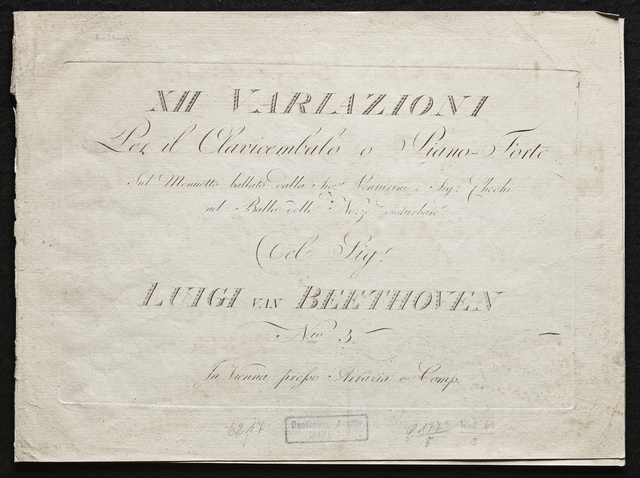 XII VARIAZIONI
Per il Clavicembalo o Piano-Forte
Sul Menuetto ballato dalla Sig.ra Venturini e Sig.r Chechi
nel Ballo delle Nozze disturbate
Del Sig.r
LUIGI VAN BEETHOVEN
Nro 3.
In Vienna presso Artaria e Comp.